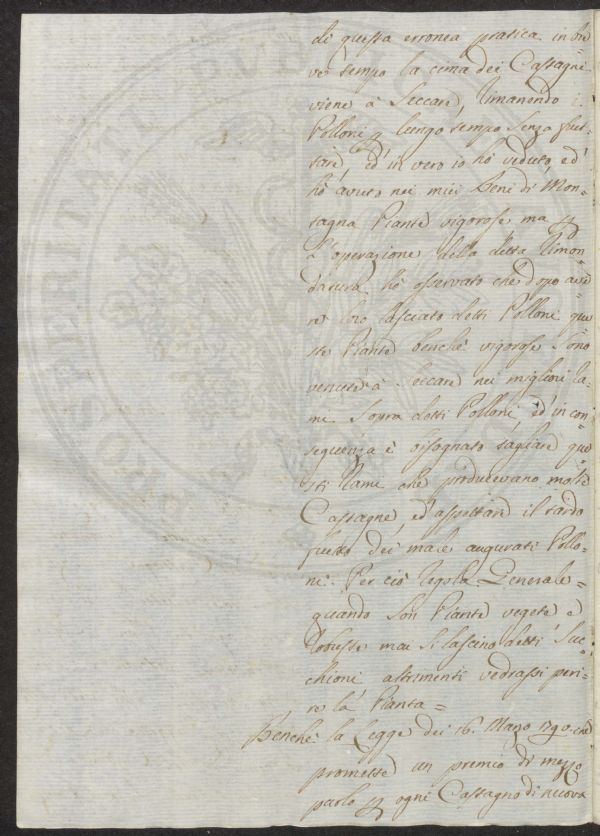 di questa erronea pratica in bre
ve tempo la cima dei Castagni
viene à Seccare, rimanendo i
Polloni p lungo tempo Senza frut-
tare, ed' in vero io hò veduto, ed'
hò avuto nei miei Beni di Mon-
tagna Piante vigorose, ma p
l'operazione della detta rimon-
datura hò osservato che dopo ave
re loro lasciato detti Polloni que
ste Piante benchè vigorose Sono
venute à Seccare nei migliori ra-
mi Sopra detti Polloni, ed' in con
seguenza è bisognato tagliare que
sti rami che producevano molte
Castagne, ed' aspettare il tardo
frutto dei male augurati Pollo-
ni. Per ciò regola Generale =
quando Son Piante vegete e
robuste mai Si lascino detti Suc-
chioni altrimenti vedrassi peri-
re la Pianta =
Benchè la Legge dei 16. Marzo 1790. che
promesse un premio di mezzo
paolo p ogni Castagno di nuova